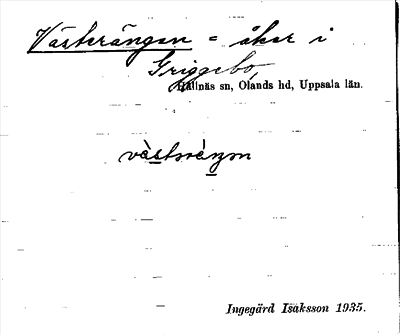 Västerängen = åker i
Griggebo,
Hållnäs sn, Olands hd, Uppsala län.
vä̀stərä́ŋən
Ingegärd Isaksson 1935.